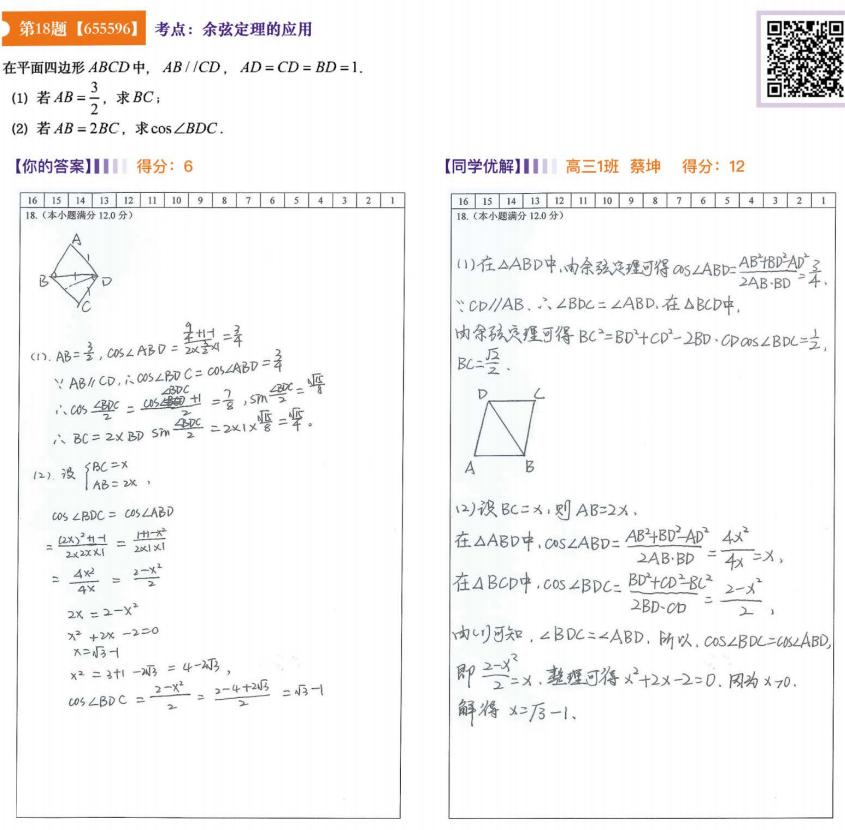 第18题【655596】 考点：余弦定理的应用
在平面四边形 ABCD 中， AB//CD， AD=CD=BD=1.
(1) 若 AB=3/2，求 BC；
(2) 若 AB=2BC，求 cos∠BDC.
【你的答案】 得分：6
16 15 14 13 12 11 10 9 8 7 6 5 4 3 2 1
18.（本小题满分 12.0 分）
A
B D
C
(1). AB=3/2, cos∠ABD = (9/4+1-1)/(2×3/2×1) = 3/4
∵ AB∥CD, ∴ cos∠BDC = cos∠ABD = 3/4
∴ cos ∠BDC/2 = (cos∠BDC+1)/2 = 7/8, sin ∠BDC/2 = √15/8
∴ BC = 2×BD sin ∠BDC/2 = 2×1×√15/8 = √15/4。
(2). 设 {BC=x
AB=2x，
cos∠BDC = cos∠ABD
= ((2x)²+1-1)/(2×2x×1) = (1+1-x²)/(2×1×1)
= 4x²/4x = (2-x²)/2
2x = 2-x²
x²+2x-2=0
x=√3-1
x² = 3+1-2√3 = 4-2√3，
cos∠BDC = (2-x²)/2 = (2-4+2√3)/2 = √3-1
【同学优解】 高三1班 蔡坤 得分：12
16 15 14 13 12 11 10 9 8 7 6 5 4 3 2 1
18.（本小题满分 12.0 分）
(1)在△ABD中,由余弦定理可得 cos∠ABD=(AB²+BD²-AD²)/(2AB·BD)=3/4.
∵CD//AB.∴∠BDC=∠ABD.在△BCD中,
由余弦定理可得 BC²=BD²+CD²-2BD·CDcos∠BDC=1/2,
BC=√2/2.
D C
A B
(2)设BC=x,则AB=2x.
在△ABD中,cos∠ABD=(AB²+BD²-AD²)/(2AB·BD)=4x²/4x=x,
在△BCD中,cos∠BDC=(BD²+CD²-BC²)/(2BD·CD)=(2-x²)/2,
由(1)可知,∠BDC=∠ABD,所以,cos∠BDC=cos∠ABD,
即(2-x²)/2=x.整理可得x²+2x-2=0.因为x>0.
解得x=√3-1.